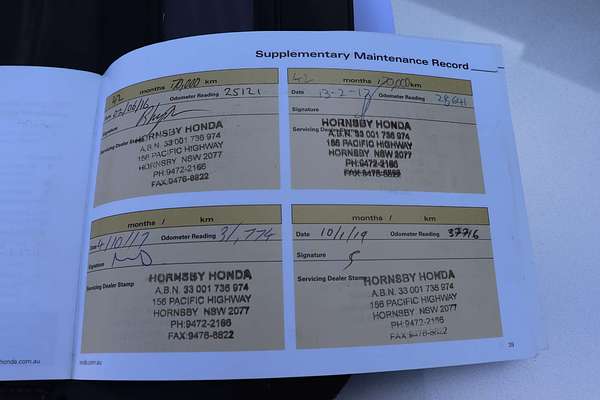 Supplementary Maintenance Record
42 months 70,000 km
Date 02/06/16 Odometer Reading 25121
Signature
Servicing Dealer Stamp
HORNSBY HONDA
A.B.N. 33 001 736 974
156 PACIFIC HIGHWAY
HORNSBY NSW 2077
PH:9472-2166
FAX:9476-8822
42 months km
Date 13-2-17 Odometer Reading
Signature
Servicing Dealer
HORNSBY HONDA
A.B.N. 33 001 736 974
156 PACIFIC HIGHWAY
HORNSBY NSW 2077
PH:9472-2166
FAX:9476-8822
months / km
Date 4/10/17 Odometer Reading 31,774
Signature
Servicing Dealer Stamp
HORNSBY HONDA
A.B.N. 33 001 736 974
156 PACIFIC HIGHWAY
HORNSBY NSW 2077
PH:9472-2166
FAX:9476-8822
months / km
Date 10/1/19 Odometer Reading 37716
Signature
Servicing Dealer Stamp
HORNSBY HONDA
A.B.N. 33 001 736 974
156 PACIFIC HIGHWAY
HORNSBY NSW 2077
PH:9472-2166
FAX:9476-8822
honda.com.au
nda.com.au
39